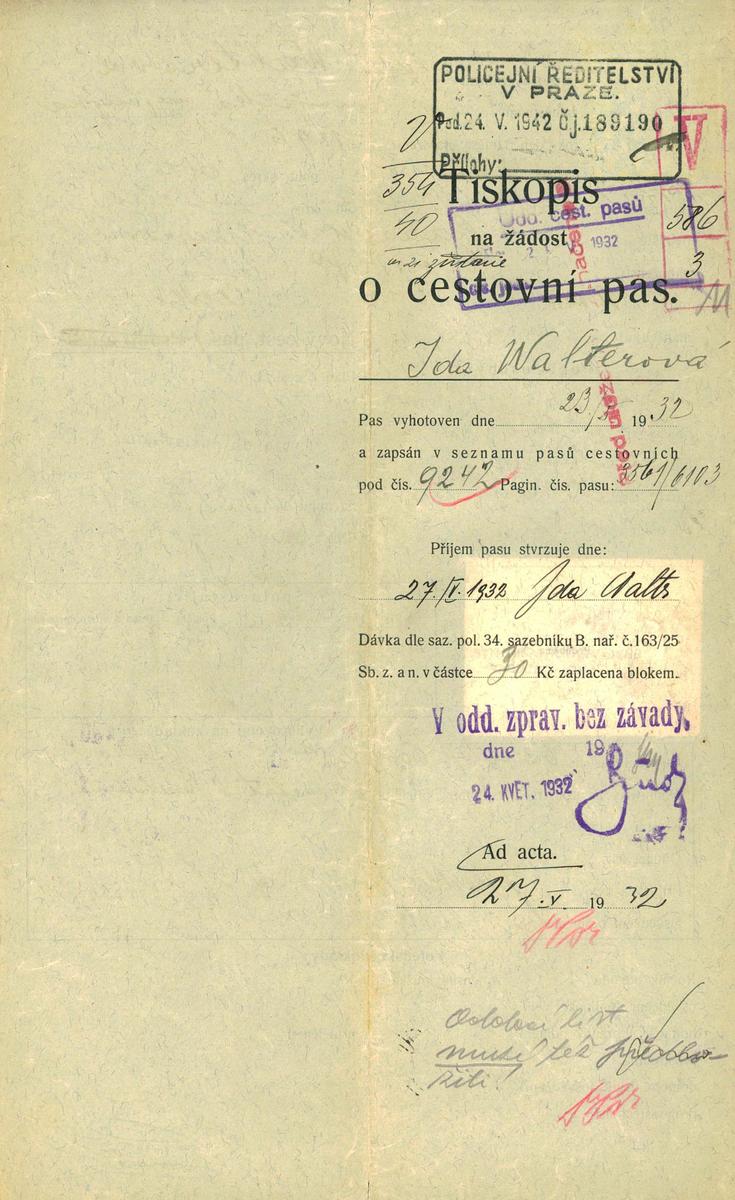 POLICEJNÍ ŘEDITELSTVÍ
V PRAZE.
Pod. 24. V. 1942 Čj. 189190
Přílohy:
V
V
354
40
Tiskopis
Odd. cest. pasů
586
3
na žádost
1932
o cestovní pas.
Ida Walterová
Pas vyhotoven dne 23/5 1932
a zapsán v seznamu pasů cestovních
pod čís. 9242 Pagin. čís. pasu: 3561/6103
Příjem pasu stvrzuje dne:
27./V. 1932 Ida Walter
Dávka dle saz. pol. 34. sazebníku B. nař. č. 163/25
Sb. z. a n. v částce 30 Kč zaplacena blokem.
V odd. zprav. bez závady.
dne 19
24. KVĚT. 1932
Ad acta.
27. V. 1932
list
musí též předlo-
žiti!